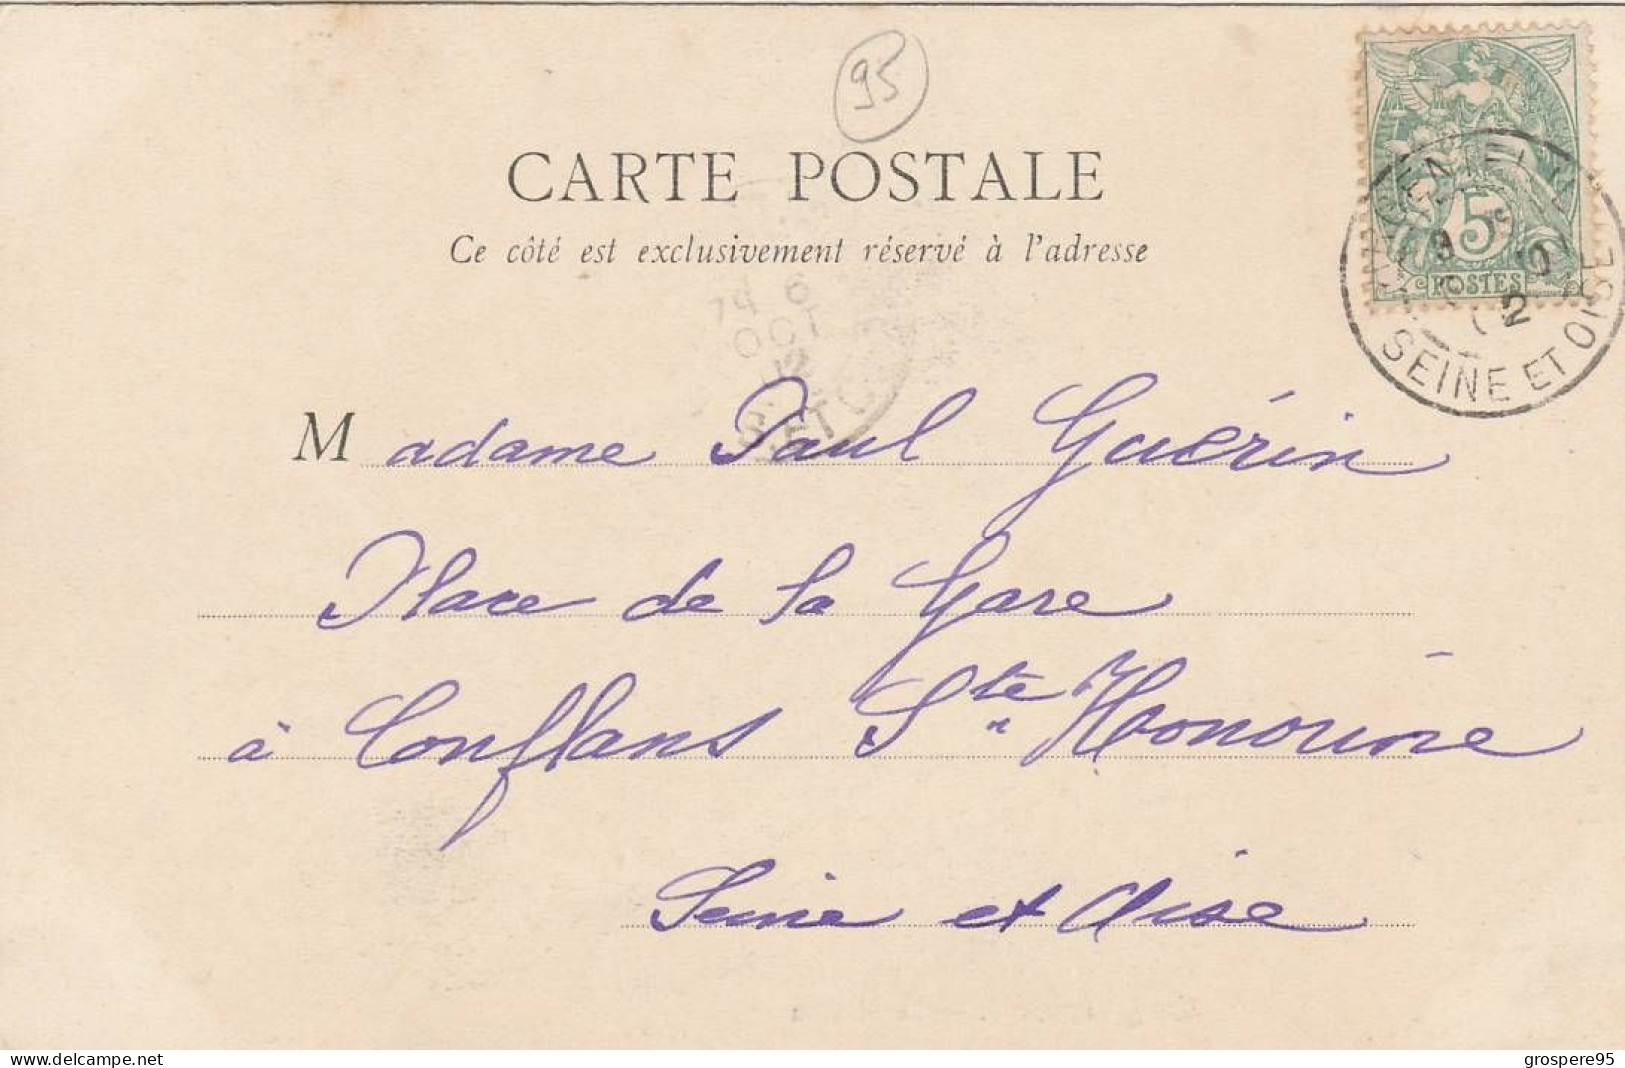 95
CARTE POSTALE
Ce côté est exclusivement réservé à l'adresse
5
POSTES
SEINE ET OISE
6
OCT
Madame Paul Guérin
Place de la Gare
à Conflans Ste Honorine
Seine et Oise
www.delcampe.net
grospere95